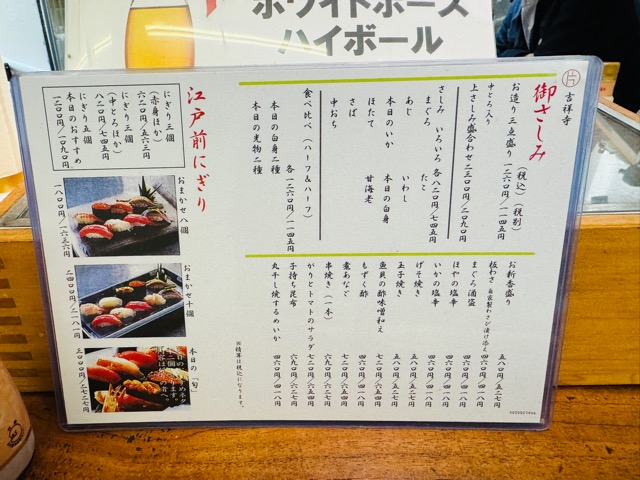 ホワイトホース
ハイボール
片 吉祥寺
御さしみ
(税込)(税別)
お造り三点盛り 一二六〇円/一一四五円
中とろ入り
上さしみ盛合わせ 二三〇〇円/二〇九〇円
さしみ いろいろ 各八二〇/七四五円
まぐろ たこ
あじ いわし
本日のいか 本日の白身
ほたて 甘海老
さば
中おち
食べ比べ(ハーフ&ハーフ)
各一二六〇円/一一四五円
本日の白身二種
本日の光物二種
お新香盛り 五八〇円/五二七円
板わさ 自家製わさび漬け添え 四六〇円/四一八円
まぐろ酒盗 四六〇円/四一八円
ほやの塩辛 四六〇円/四一八円
いかの塩辛 四六〇円/四一八円
げそ焼き 五八〇円/五二七円
玉子焼き 五八〇円/五二七円
魚貝の酢味噌和え
もずく酢 四六〇円/四一八円
煮あなご 七二〇円/六五四円
串焼き(一本) 四六〇円/四一八円
がりとトマトのサラダ 七二〇円/六五四円
子持ち昆布 六九〇円/六二七円
丸干し焼するめいか 四六〇円/四一八円
※精算は税込になります。
江戸前にぎり
にぎり三個
(赤身ほか)
六二〇円/五六三円
にぎり三個
(中とろほか)
八二〇円/七四五円
にぎり五個
本日のおすすめ
一二〇〇円/一〇九〇円
おまかせ八個
一八〇〇円/一六三六円
おまかせ十個
二四〇〇円/二一八一円
本日の「旬」
三〇〇〇円/二七二七円